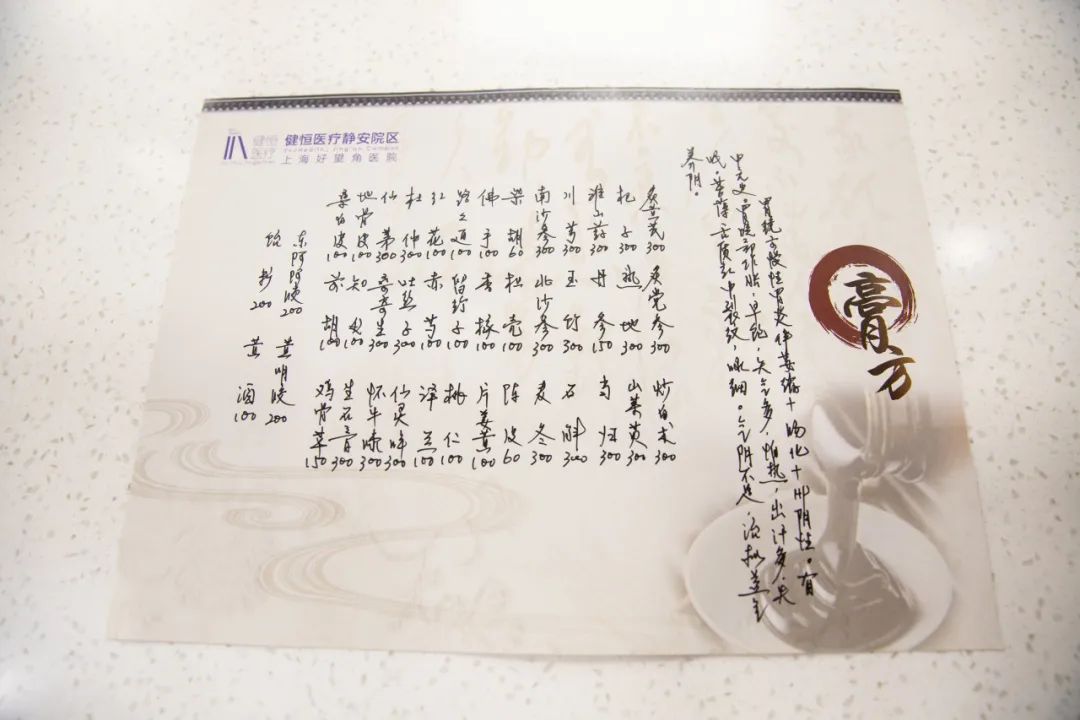 健恒医疗
健恒医疗静安院区
上海好望角医院
膏方
胃镜示慢性胃炎伴萎缩+肠化+HP阴性。有
甲亢史,胃脘部作胀,早饱,矢气多,怕热,出汗多,
苔薄,舌质红中裂纹,脉细。气阴不足,治拟益气
养阴。
炙黄芪300 炙党参300 炒白术300
杞子300 熟地300 山萸肉300
淮山药300 丹参150 当归300
川芎300 玉竹300 石斛300
南沙参300 北沙参300 麦冬300
柴胡60 枳壳100 陈皮60
佛手100 香橼100 片姜黄100
路路通100 留行子100 桃仁100
红花100 赤芍100 泽兰100
杜仲300 吐丝子300 仙灵脾300
仙茅300 寄生300 怀牛膝300
地骨皮100 知母100 生石膏300
桑白皮100 前胡100 鸡骨草150
东阿阿胶200 黄明胶200
饴糖200 黄酒100